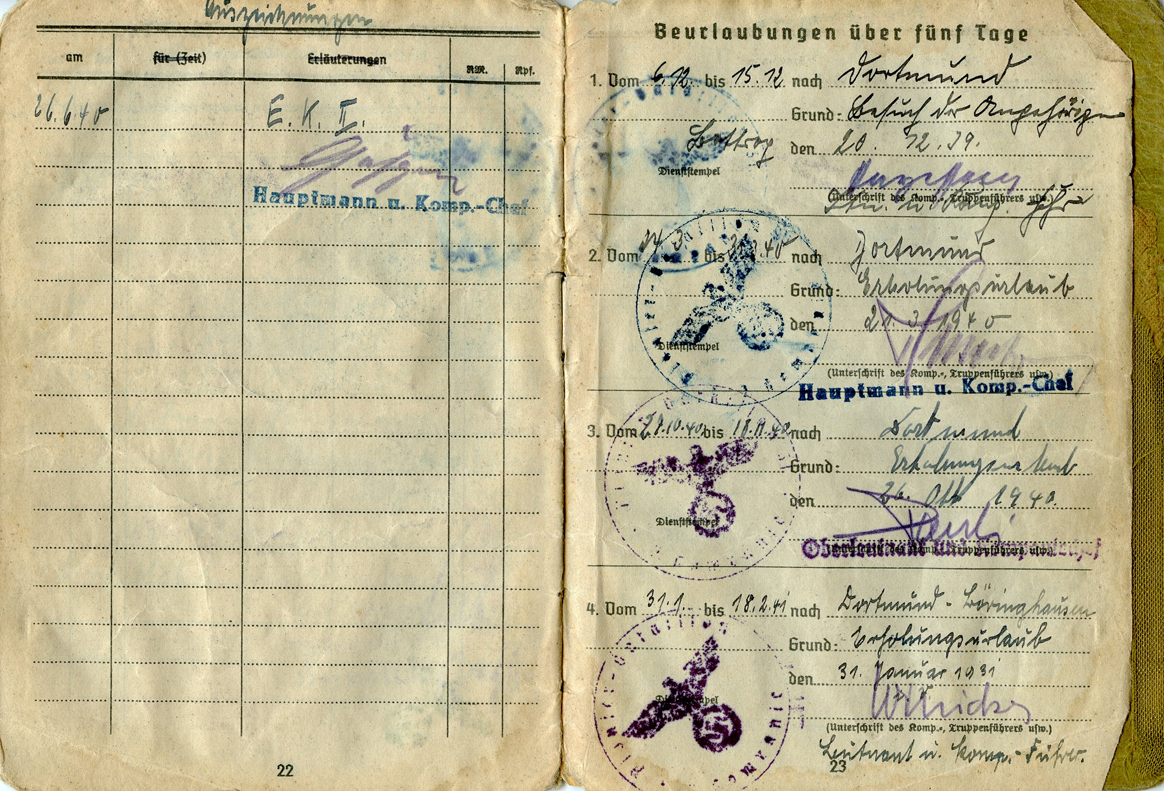 Auszeichnungen
am für (Zeit) Erläuterungen RM. Rpf.
26.6.40 E. K. II.
Hauptmann u. Komp.-Chef
22
Beurlaubungen über fünf Tage
1. Vom 6.12. bis 15.12 nach Dortmund
Grund: Besuch der Angehörigen
den 20. 12. 39.
Dienststempel
(Unterschrift des Komp.-, Truppenführers usw.)
2. Vom bis 40 nach Dortmund
Grund: Erholungsurlaub
den 21.3.1940
Dienststempel
(Unterschrift des Komp.-, Truppenführers usw.)
Hauptmann u. Komp.-Chef
3. Vom 27.10.40 bis nach Dortmund
Grund: Erholungsurlaub
den 26. Okt 1940.
Dienststempel
Oberleutnant und Kompaniechef
4. Vom 31.1. bis 18.2.41 nach Dortmund-Böringhausen
Grund: Erholungsurlaub
den 31. Januar 1931
Dienststempel
(Unterschrift des Komp.-, Truppenführers usw.)
Leutnant u. Komp.-Führer.
23